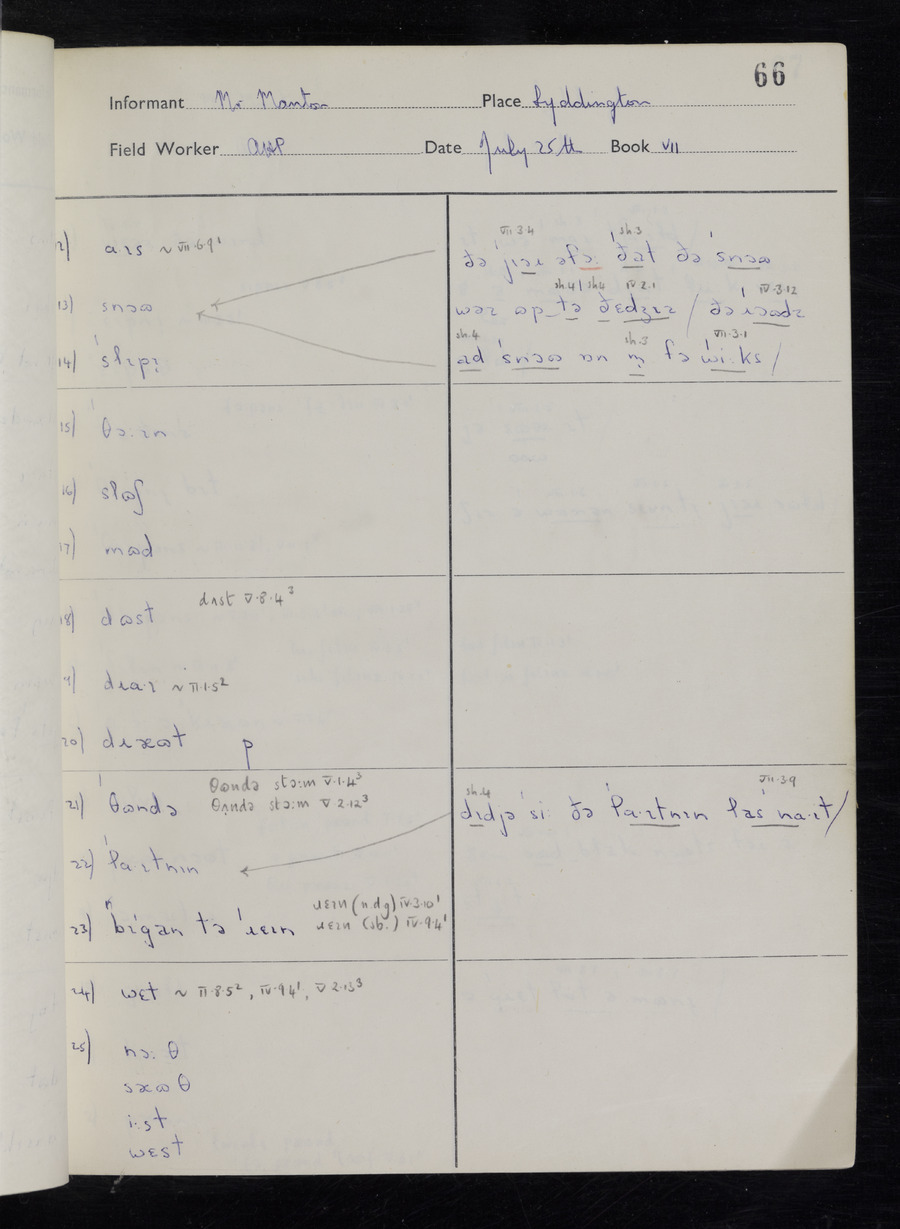 66
Informant Mr Manton Place Lyddington
Field Worker Date July 25th Book VII
12) aːɪs ~ VII·6·9¹
13) snɔɷ
14) ˈslɪpɪ
15) θɔːɪn
16) slɷʃ
17) mɷd
18) dɷst dʌst V·8·4³
dɹaːɪ ~ VII·1·5²
20) dɹæɷt p
21) ˈθɷndə θɷndə stɔːm V·1·4³
θʌndə stɔːm V·2·12³
22) ˈlaːɪtnɪn
23) bɪˈgan tə ˈɹeɪn ɹeɪn (n.dg) IV·3·10¹
ɹeɪn (sb.) IV·9·4¹
24) wɛt ~ II·8·5², IV·9·4¹, V·2·13³
25) nɔːθ
sæɷθ
iːst
wɛst
VII·3·4 sh.3
ðə ˈjɪəɹ əfɔː ˈðat ðə ˈsnɔɷ
sh.4 / sh4 IV·2·1 IV·3·12
wəz ɷp tə ðɛdʒɪz / ðə ˈɹɔɷdz
sh.4 sh.3 VII·3·1
ad ˈsnɔɷ ɒn m̩ fə ˈwiːks /
sh.4 VII·3·9
dɪdjə ˈsiː ðə ˈlaːɪtnɪn las ˈnaːɪt /